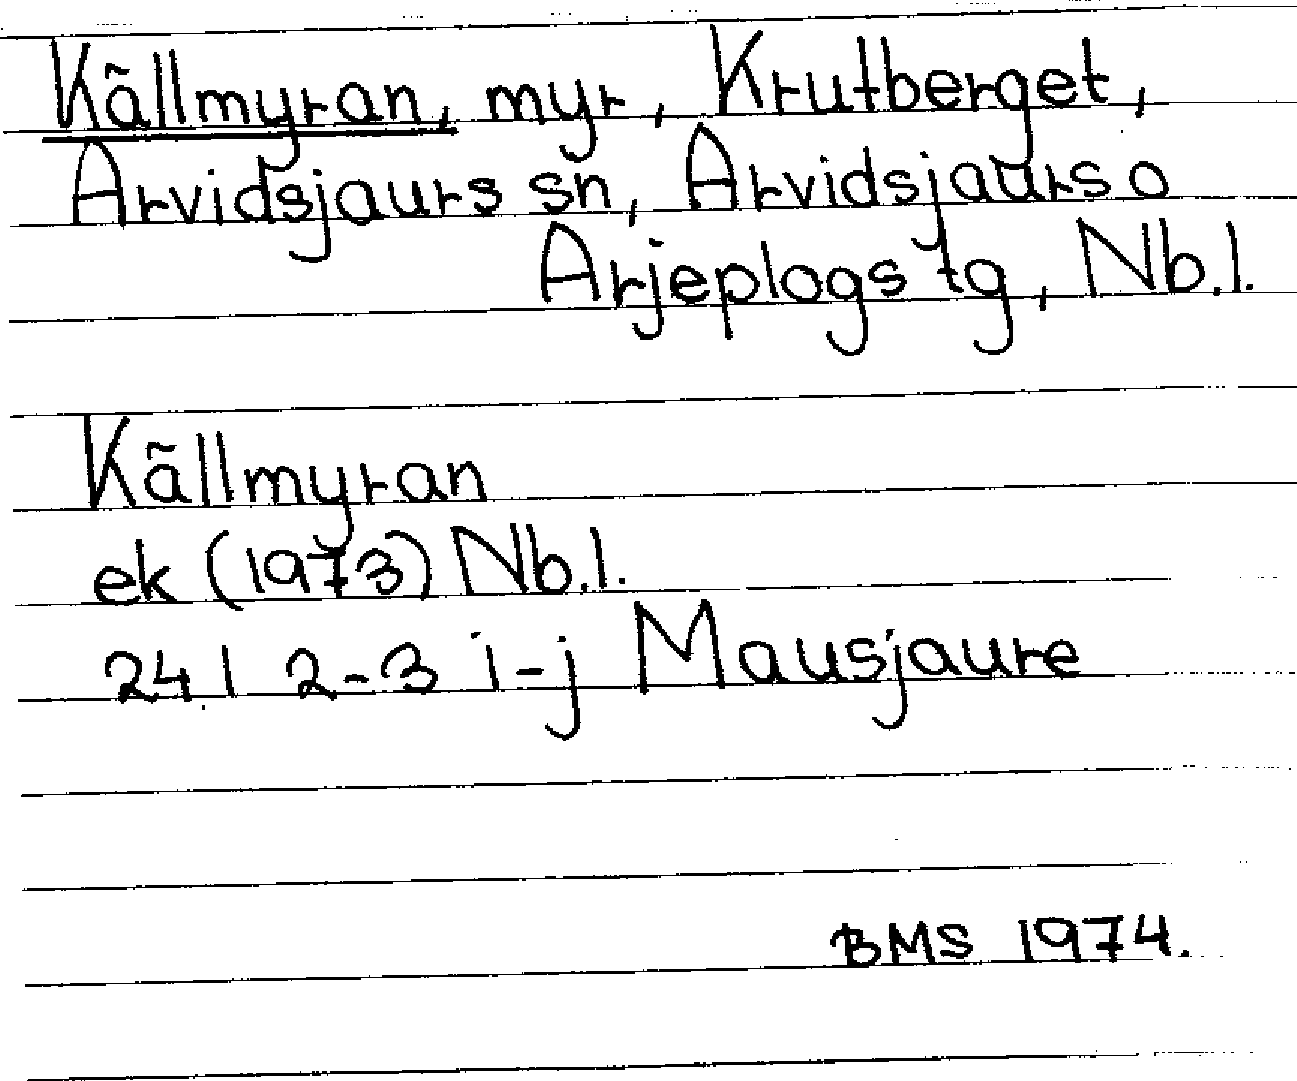 Källmyran, myr, Krutberget,
Arvidsjaurs sn, Arvidsjaurs o
Arjeplogs tg, Nb.l.
Källmyran
ek (1973) Nb.l.
24 I 2-3 i-j Mausjaure
BMS 1974.